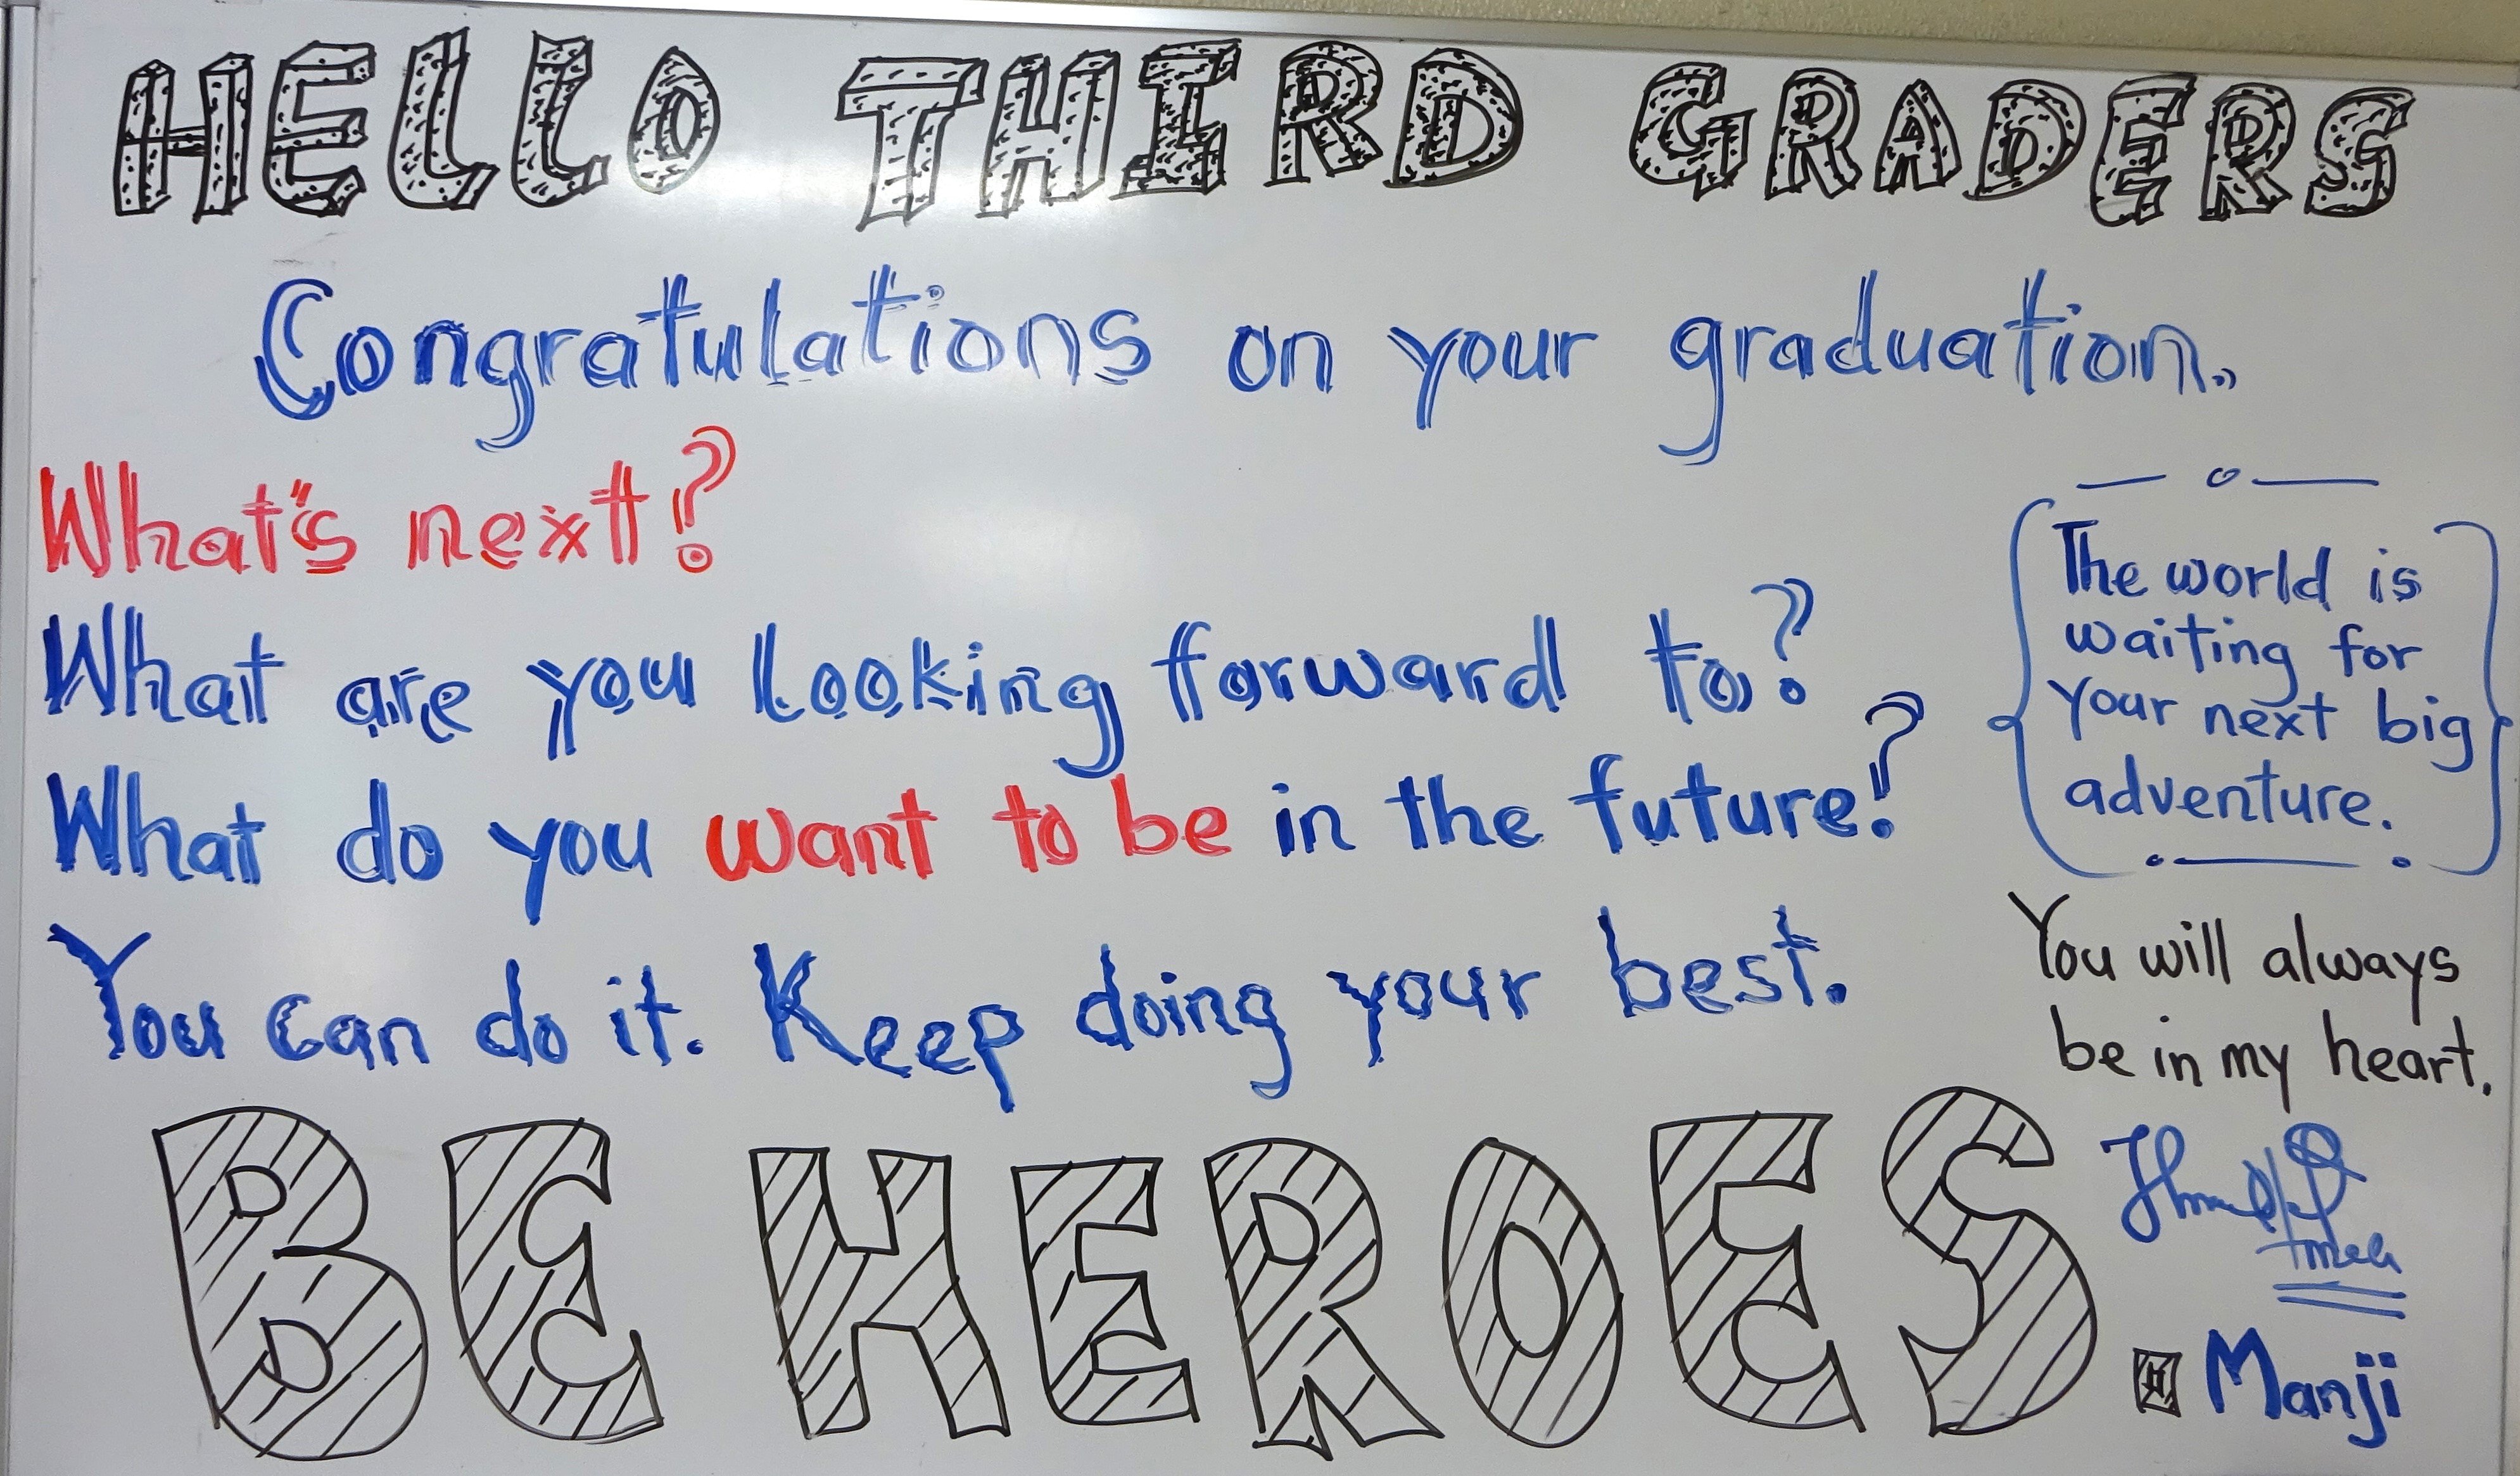 HELLO THIRD GRADERS
Congratulations on your graduation.
What's next?
What are you looking forward to?
What do you want to be in the future?
You can do it. Keep doing your best.
The world is
waiting for
your next big
adventure.
You will always
be in my heart.
BE HEROES
H. Manji